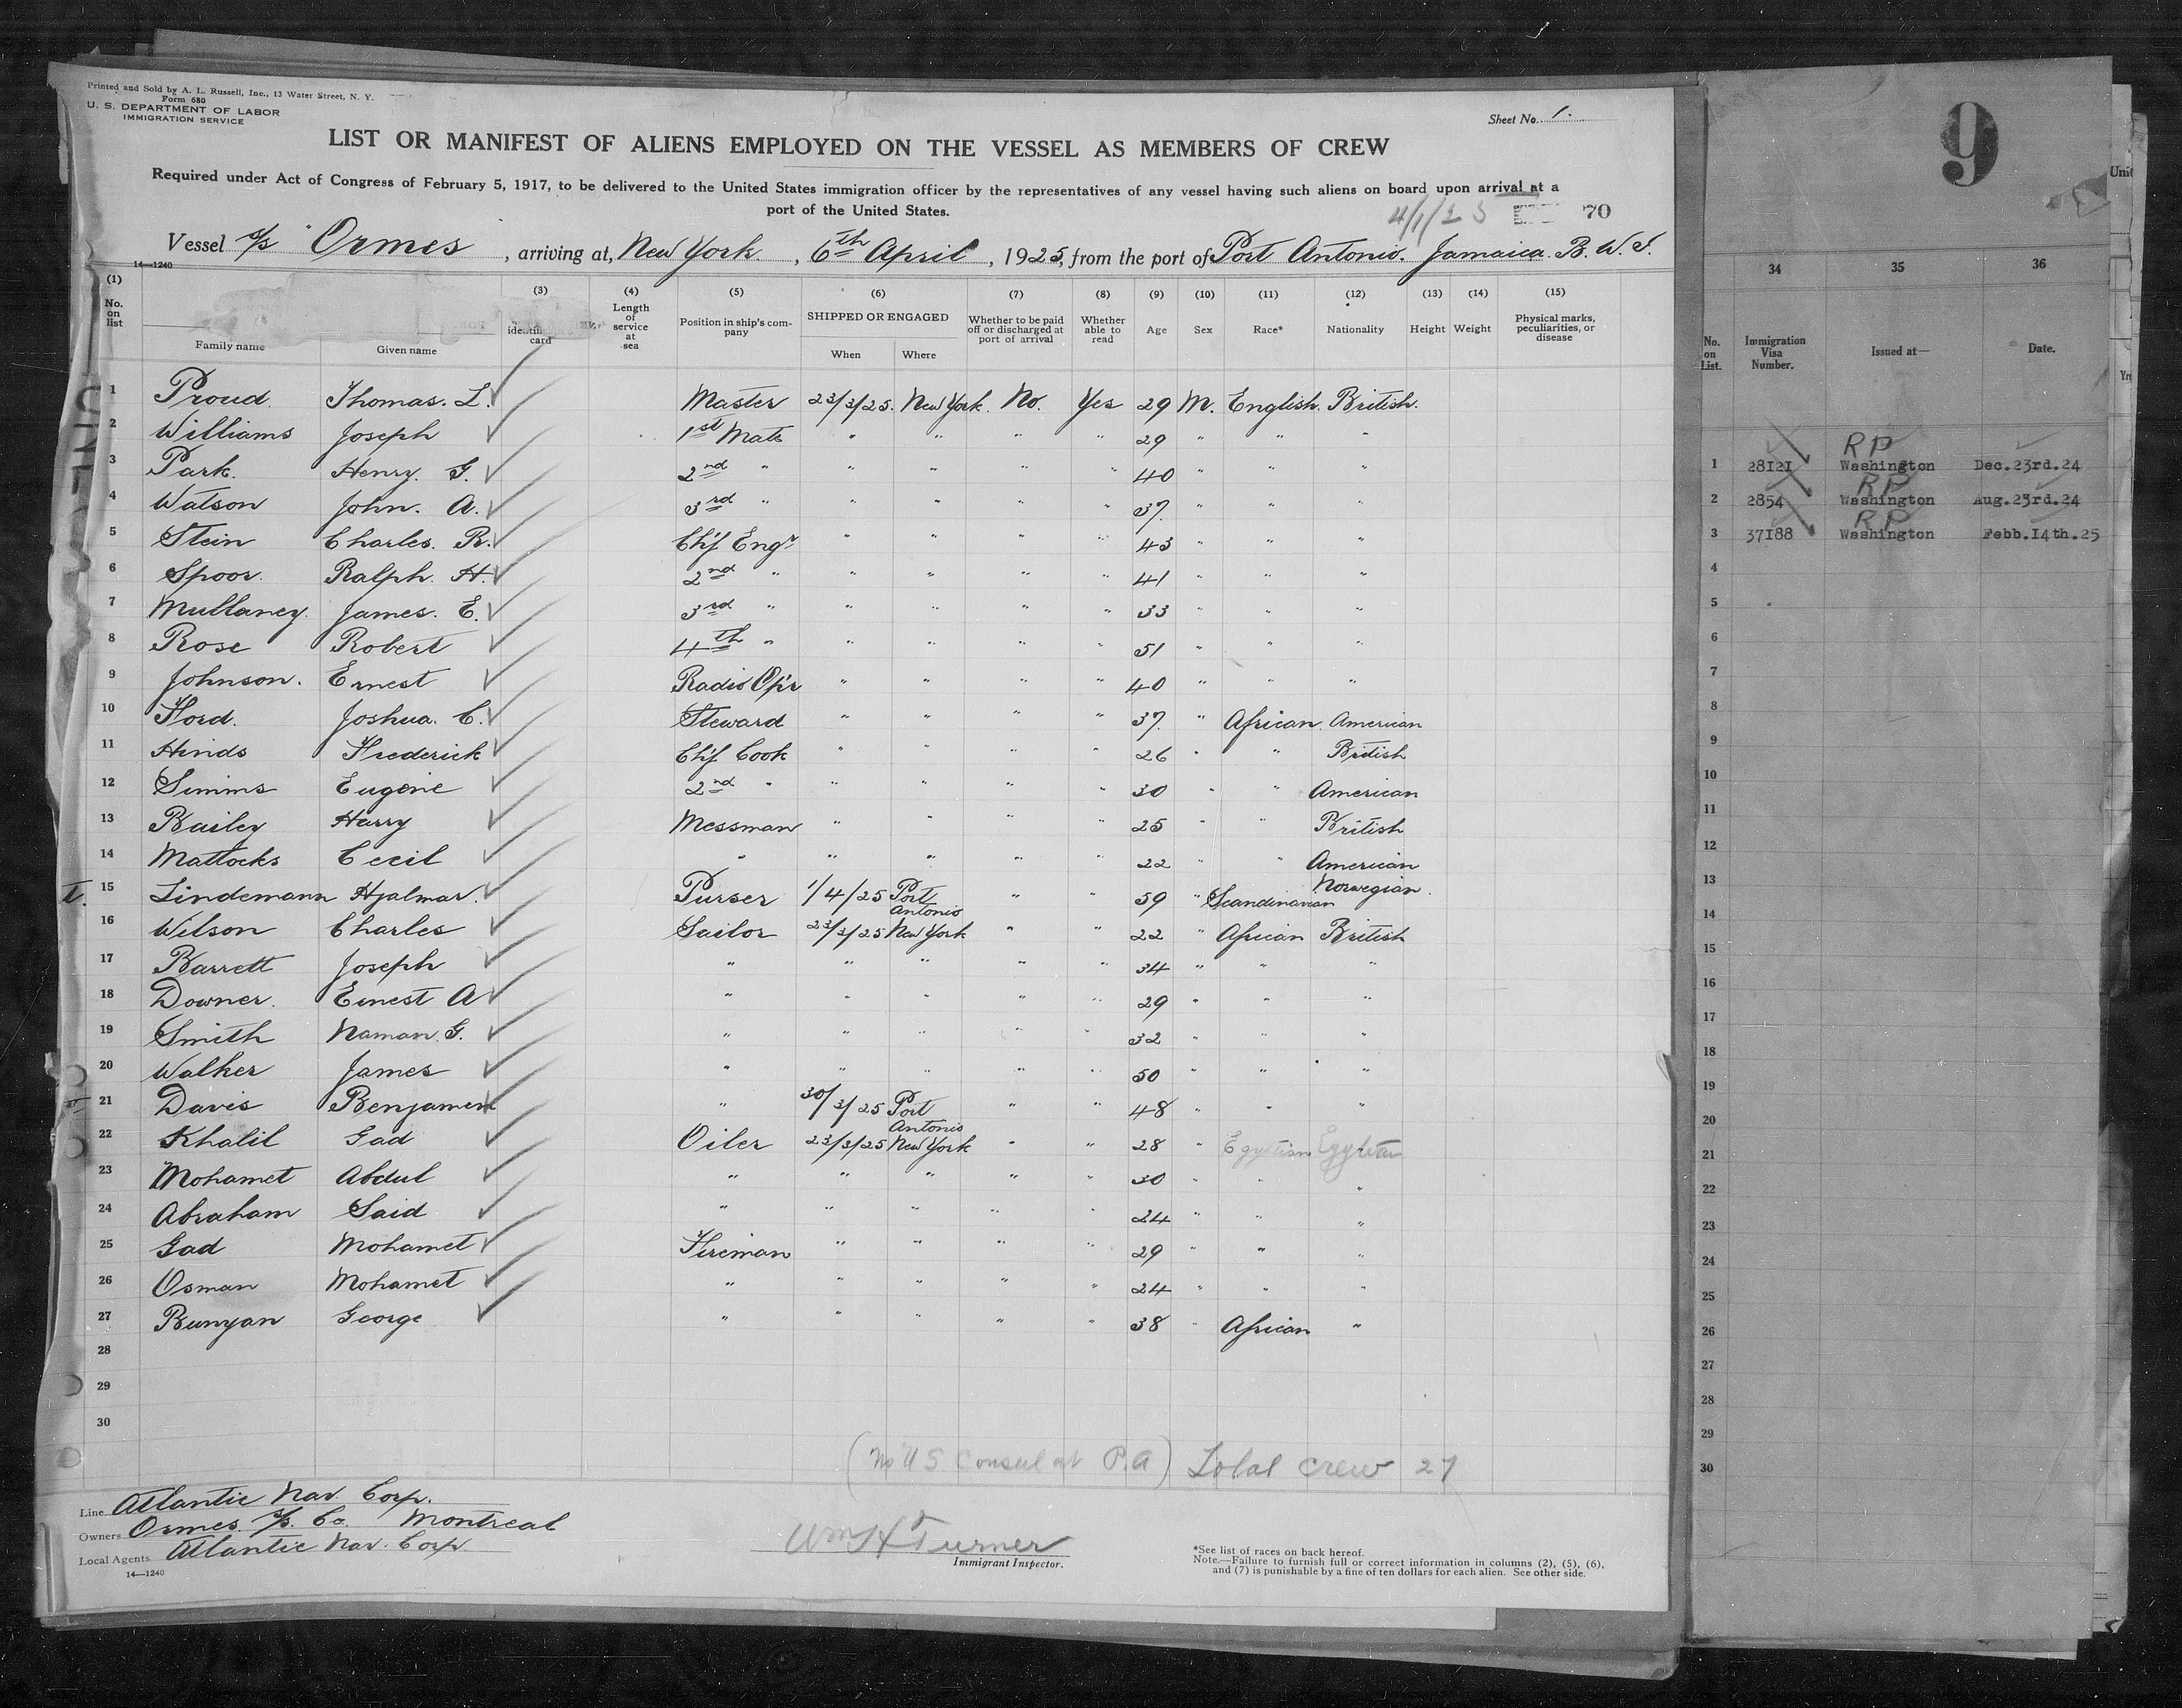 Printed and Sold by A. L. Russell, Inc., 13 Water Street, N. Y.
Form 680
U. S. DEPARTMENT OF LABOR
IMMIGRATION SERVICE
Sheet No. 1.
LIST OR MANIFEST OF ALIENS EMPLOYED ON THE VESSEL AS MEMBERS OF CREW
Required under Act of Congress of February 5, 1917, to be delivered to the United States immigration officer by the representatives of any vessel having such aliens on board upon arrival at a
port of the United States.
70
Vessel s/s "Ormes , arriving at, New York , 6th April , 1925, from the port of Port Antonio. Jamaica. B. W. I.
14—1240
(1) (3) (4) (5) (6) (7) (8) (9) (10) (11) (12) (13) (14) (15)
No. on list Family name Given name card Length of service at sea Position in ship's company SHIPPED OR ENGAGED When Where Whether to be paid off or discharged at port of arrival Whether able to read Age Sex Race* Nationality Height Weight Physical marks, peculiarities, or disease
1 Proud. Thomas. L. Master 23/3/25. New York. No. Yes 29 M. English. British.
2 Williams Joseph 1st Mate " " " " 29 " " "
3 Park. Henry. G. 2nd " " " " " 40 " " "
4 Watson John. A. 3rd " " " " " 37. " " "
5 Stein Charles. R. Ch'f Engr " " " " 43 " " "
6 Spoor. Ralph. H. 2nd " " " " " 41 " " "
7 Mullaney. James. E. 3rd " " " " " 33 " " "
8 Rose Robert 4th " " " " " 51 " " "
9 Johnson. Ernest Radio Op'r " " " " 40 " " "
10 Ford. Joshua. C. Steward " " " " 37. " African. American
11 Hinds Frederick Ch'f Cook " " " " 26 " " British
12 Simms Eugene 2nd " " " " " 30 " " American
13 Bailey Harry Messman " " " " 25 " " British
14 Mattocks Cecil " " " " " 22 " " American
15 Lindemann Hjalmar. Purser 1/4/25 Port Antonio " " 59 " Scandinavian Norwegian.
16 Wilson Charles Sailor 23/3/25 New York " " 22 " African British
17 Barrett Joseph " " " " " 34 " " "
18 Downer. Ernest A " " " " " 29 " " "
19 Smith Naman. G. " " " " " 32 " " "
20 Walker James " " " " " 50 " " "
21 Davis Benjamen " 30/3/25 Port Antonio " " 48 " " "
22 Khalil Gad Oiler 23/3/25 New York " " 28 " Egyptian Egyptian
23 Mohamet Abdul " " " " " 30 " " "
24 Abraham Said " " " " " 24 " " "
25 Gad Mohamet Fireman " " " " 29 " " "
26 Osman Mohamet " " " " " 24 " " "
27 Bunyan George " " " " " 38 " African "
28
29
30
(No U S Consul at P.A) Total crew 27
Line Atlantic Nav. Corp.
Owners Ormes s/s. Co. Montreal
Local Agents Atlantic Nav. Corp.
14—1240
Wm H Turner
Immigrant Inspector.
*See list of races on back hereof.
Note.—Failure to furnish full or correct information in columns (2), (5), (6),
and (7) is punishable by a fine of ten dollars for each alien. See other side.
9
34 35 36
No. on List. Immigration Visa Number. Issued at— Date.
RP
1 28121 Washington Dec.23rd.24
RP
2 2854 Washington Aug.23rd.24
RP
3 37188 Washington Febb.14th.25
4
5
6
7
8
9
10
11
12
13
14
15
16
17
18
19
20
21
22
23
24
25
26
27
28
29
30